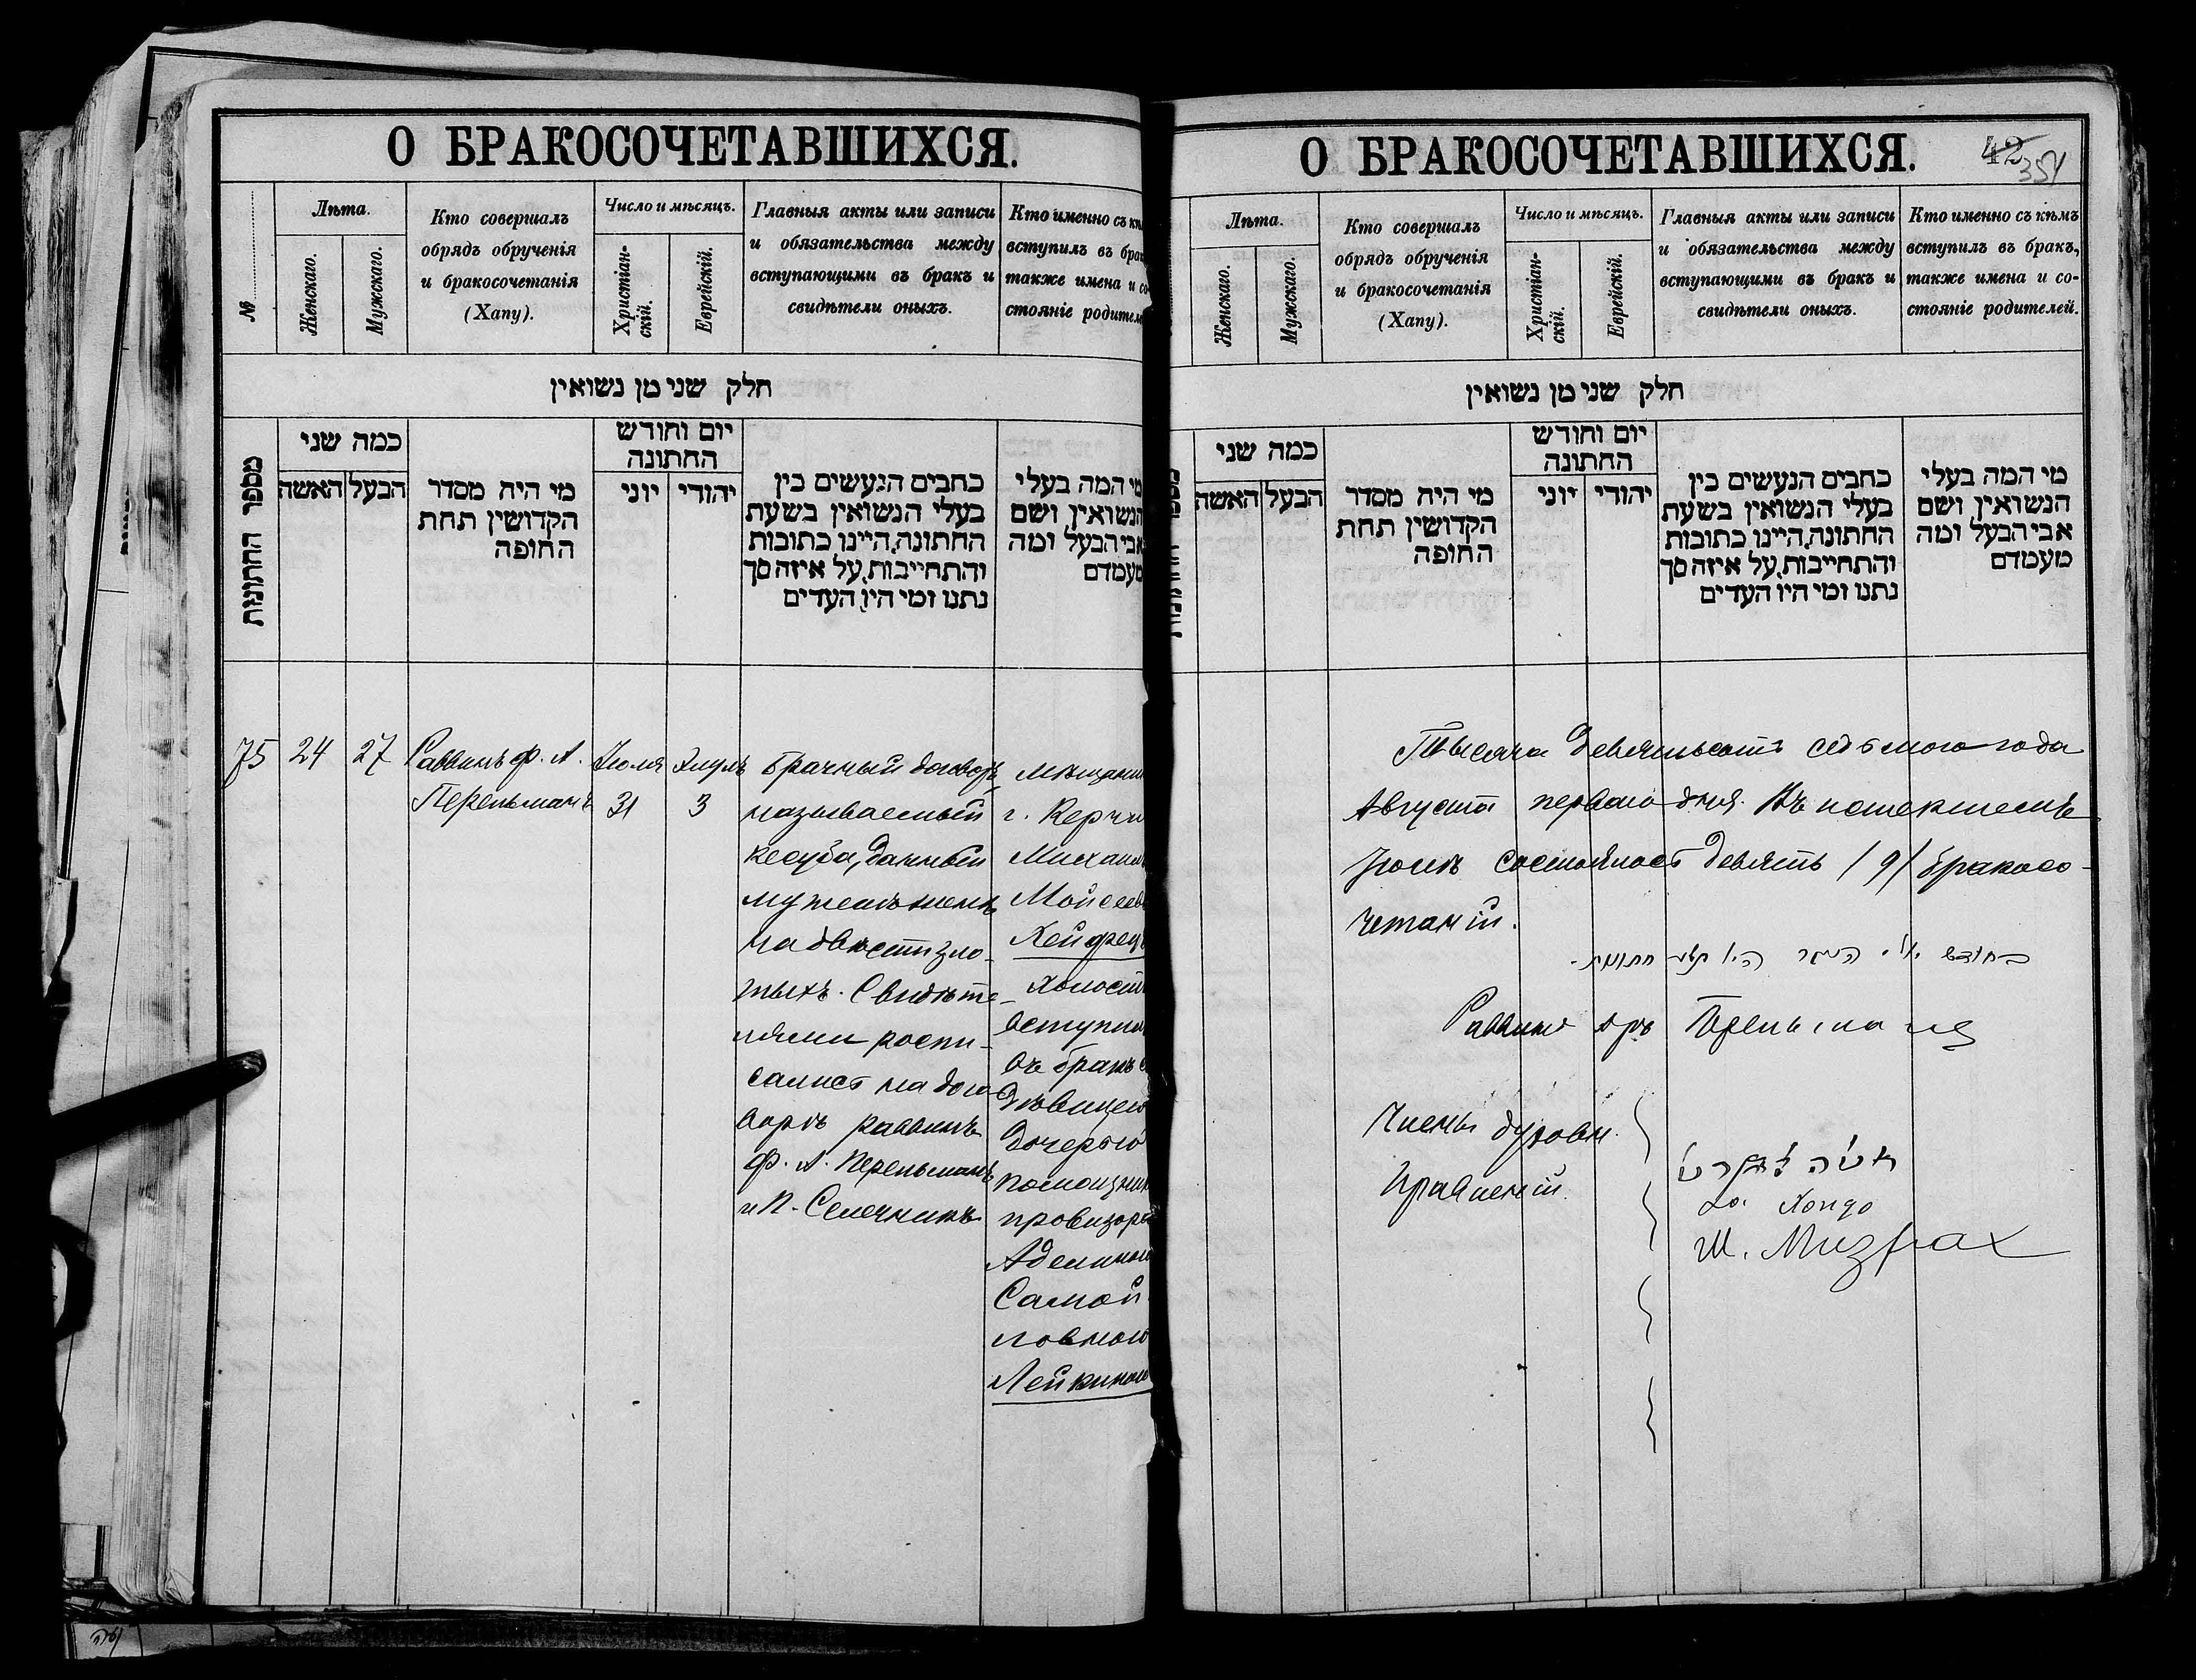 О БРАКОСОЧЕТАВШИХСЯ.
№
Лѣта.
Женскаго.
Мужскаго.
Кто совершалъ
обрядъ обрученія
и бракосочетанія
(Хапу).
Число и мѣсяцъ.
Христіан-
скій.
Еврейскій.
Главныя акты или записи
и обязательства между
вступающими въ бракъ и
свидѣтели оныхъ.
Кто именно съ кѣ
вступилъ въ бра
также имена и со-
стояніе родител
חלק שני מן נשואין
מספר החתונות
כמה שני
האשה
הבעל
מי היה מסדר
הקדושין תחת
החופה
יום וחודש
החתונה
יוני
יהודי
כתבים הנעשים בין
בעלי הנשואין בשעת
החתונה, היינו כתובות
והתחייבות, על איזה סך
נתנו ומי היו העדים
מי המה בעלי
הנשואין ושם
אבי הבעל ומה
מעמדם
75
24
27
Раввинъ Ф. А.
Перельманъ
Іюля
31
Элулъ
3
Брачный договоръ
называемый
кесуба, данный
мужемъ женѣ
на двѣсти зло-
тыхъ. Свидѣте-
лями распи-
сались на дого-
ворѣ раввинъ
Ф. А. Перельманъ
и П. Селечникъ
Мѣщанин
г. Керчи
Михаилъ
Мойсеев
Хейфецъ
холостъ
вступилъ
въ бракъ съ
дѣвицею
дочерью
помощник
провизора
Аделиною
Самой
ловною
Лейкиною
О БРАКОСОЧЕТАВШИХСЯ.
42
351
Лѣта.
Женскаго.
Мужскаго.
Кто совершалъ
обрядъ обрученія
и бракосочетанія
(Хапу).
Число и мѣсяцъ.
Христіан-
скій.
Еврейскій.
Главныя акты или записи
и обязательства между
вступающими въ бракъ и
свидѣтели оныхъ.
Кто именно съ кѣмъ
вступилъ въ бракъ,
также имена и со-
стояніе родителей.
חלק שני מן נשואין
כמה שני
האשה
הבעל
מי היה מסדר
הקדושין תחת
החופה
יום וחודש
החתונה
יוני
יהודי
כתבים הנעשים בין
בעלי הנשואין בשעת
החתונה, היינו כתובות
והתחייבות, על איזה סך
נתנו ומי היו העדים
מי המה בעלי
הנשואין ושם
אבי הבעל ומה
מעמדם
Тысяча девятьсотъ седьмого года
Августа перваго дня. Въ истекшемъ
Іюлѣ состоялось девять /9/ бракосо-
четаній.
בחודש יולי העבר היו תשע חתונות.
Раввинъ Перельманъ
Члены духовн.
Правленій
Ш. Мизрах